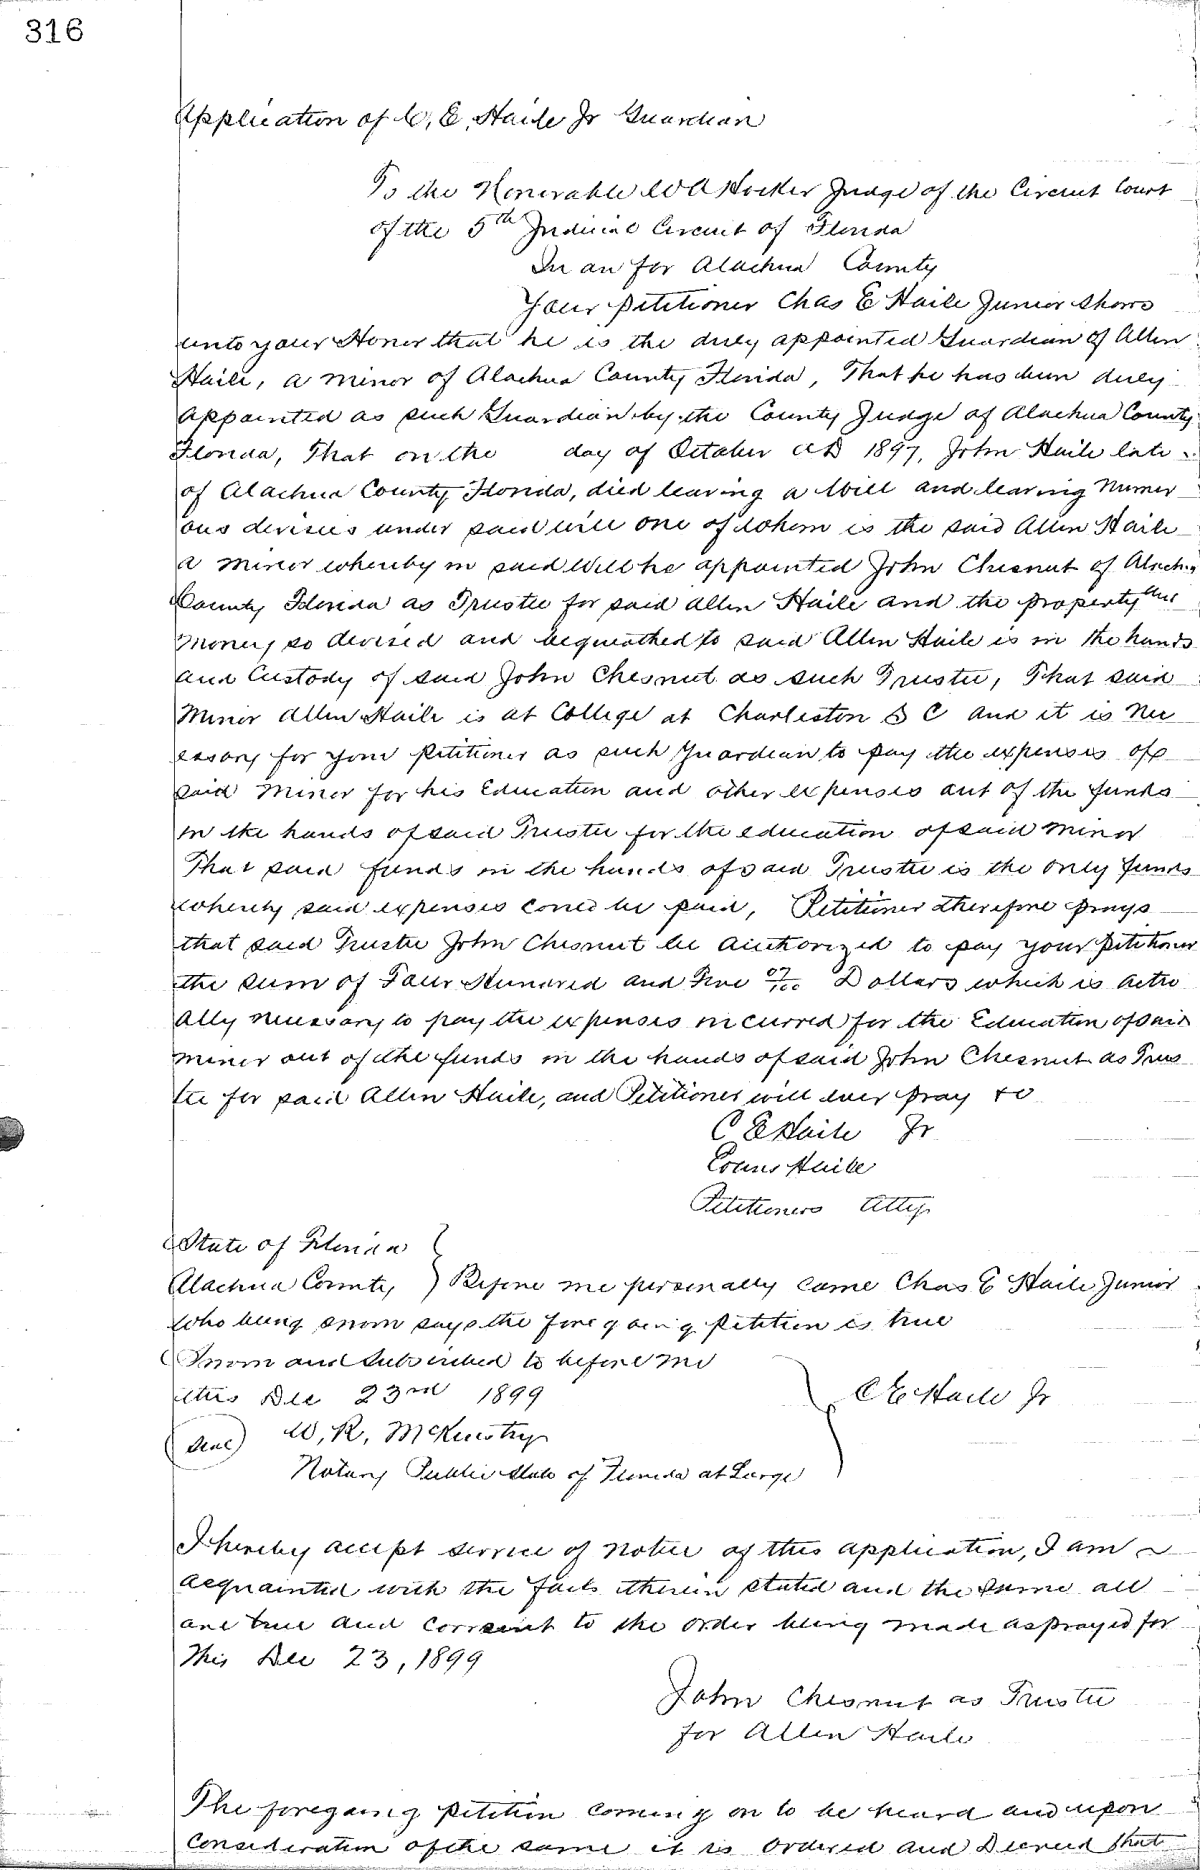 316
Application of C, E, Haile Jr Guardian
To the Honorable W A Hocker Judge of the Circuit Court
of the 5th Judicial Circuit of Florida
In an for Alachua County
Your Petitioner Chas E Haile Junior shows
unto your Honor that he is the duly appointed Guardian of Allen
Haile, a minor of Alachua County Florida, That he has been duly
appointed as such Guardian by the County Judge of Alachua County
Florida, That on the day of October AD 1897, John Haile late
of Alachua County Florida, died leaving a Will and leaving Numer
ous devisees under said will one of whom is the said Allen Haile
a minor whereby in said Will he appointed John Chesnut of Alachua
County Florida as Trustee for said Allen Haile and the property and
money so devised and bequeathed to said Allen Haile is in the hands
and Custody of said John Chesnut as such Trustee, That said
Minor Allen Haile is at College at Charleston S C and it is Nec
essary for your Petitioner as such Guardian to pay the expenses of
said Minor for his Education and other expenses out of the funds
in the hands of said Trustee for the education of said minor
That said funds in the hands of said Trustee is the only funds
whereby said expenses could be paid, Petitioner therefore prays
that said Trustee John Chesnut be authorized to pay your Petitioner
the sum of Four Hundred and Five 07/100 Dollars which is actu
ally necessary to pay the expenses incurred for the Education of said
minor out of the funds in the hands of said John Chesnut as Trus
tee for said Allen Haile, and Petitioner will ever pray &c
C E Haile Jr
Evans Haile
Petitioners Atty
State of Florida }
Alachua County } Before me personally came Chas E Haile Junior
who being sworn says the foregoing petition is true
Sworn and Subscribed to before me
this Dec 23rd 1899 C E Haile Jr
(Seal) W, R, McKinstry
Notary Public State of Florida at Large
I hereby accept service of notice of this application, I am
acquainted with the facts therein stated and the same all
are true and consent to the order being made as prayed for
This Dec 23, 1899
John Chesnut as Trustee
for Allen Haile
The foregoing petition coming on to be heard and upon
consideration of the same it is ordered and Decreed that